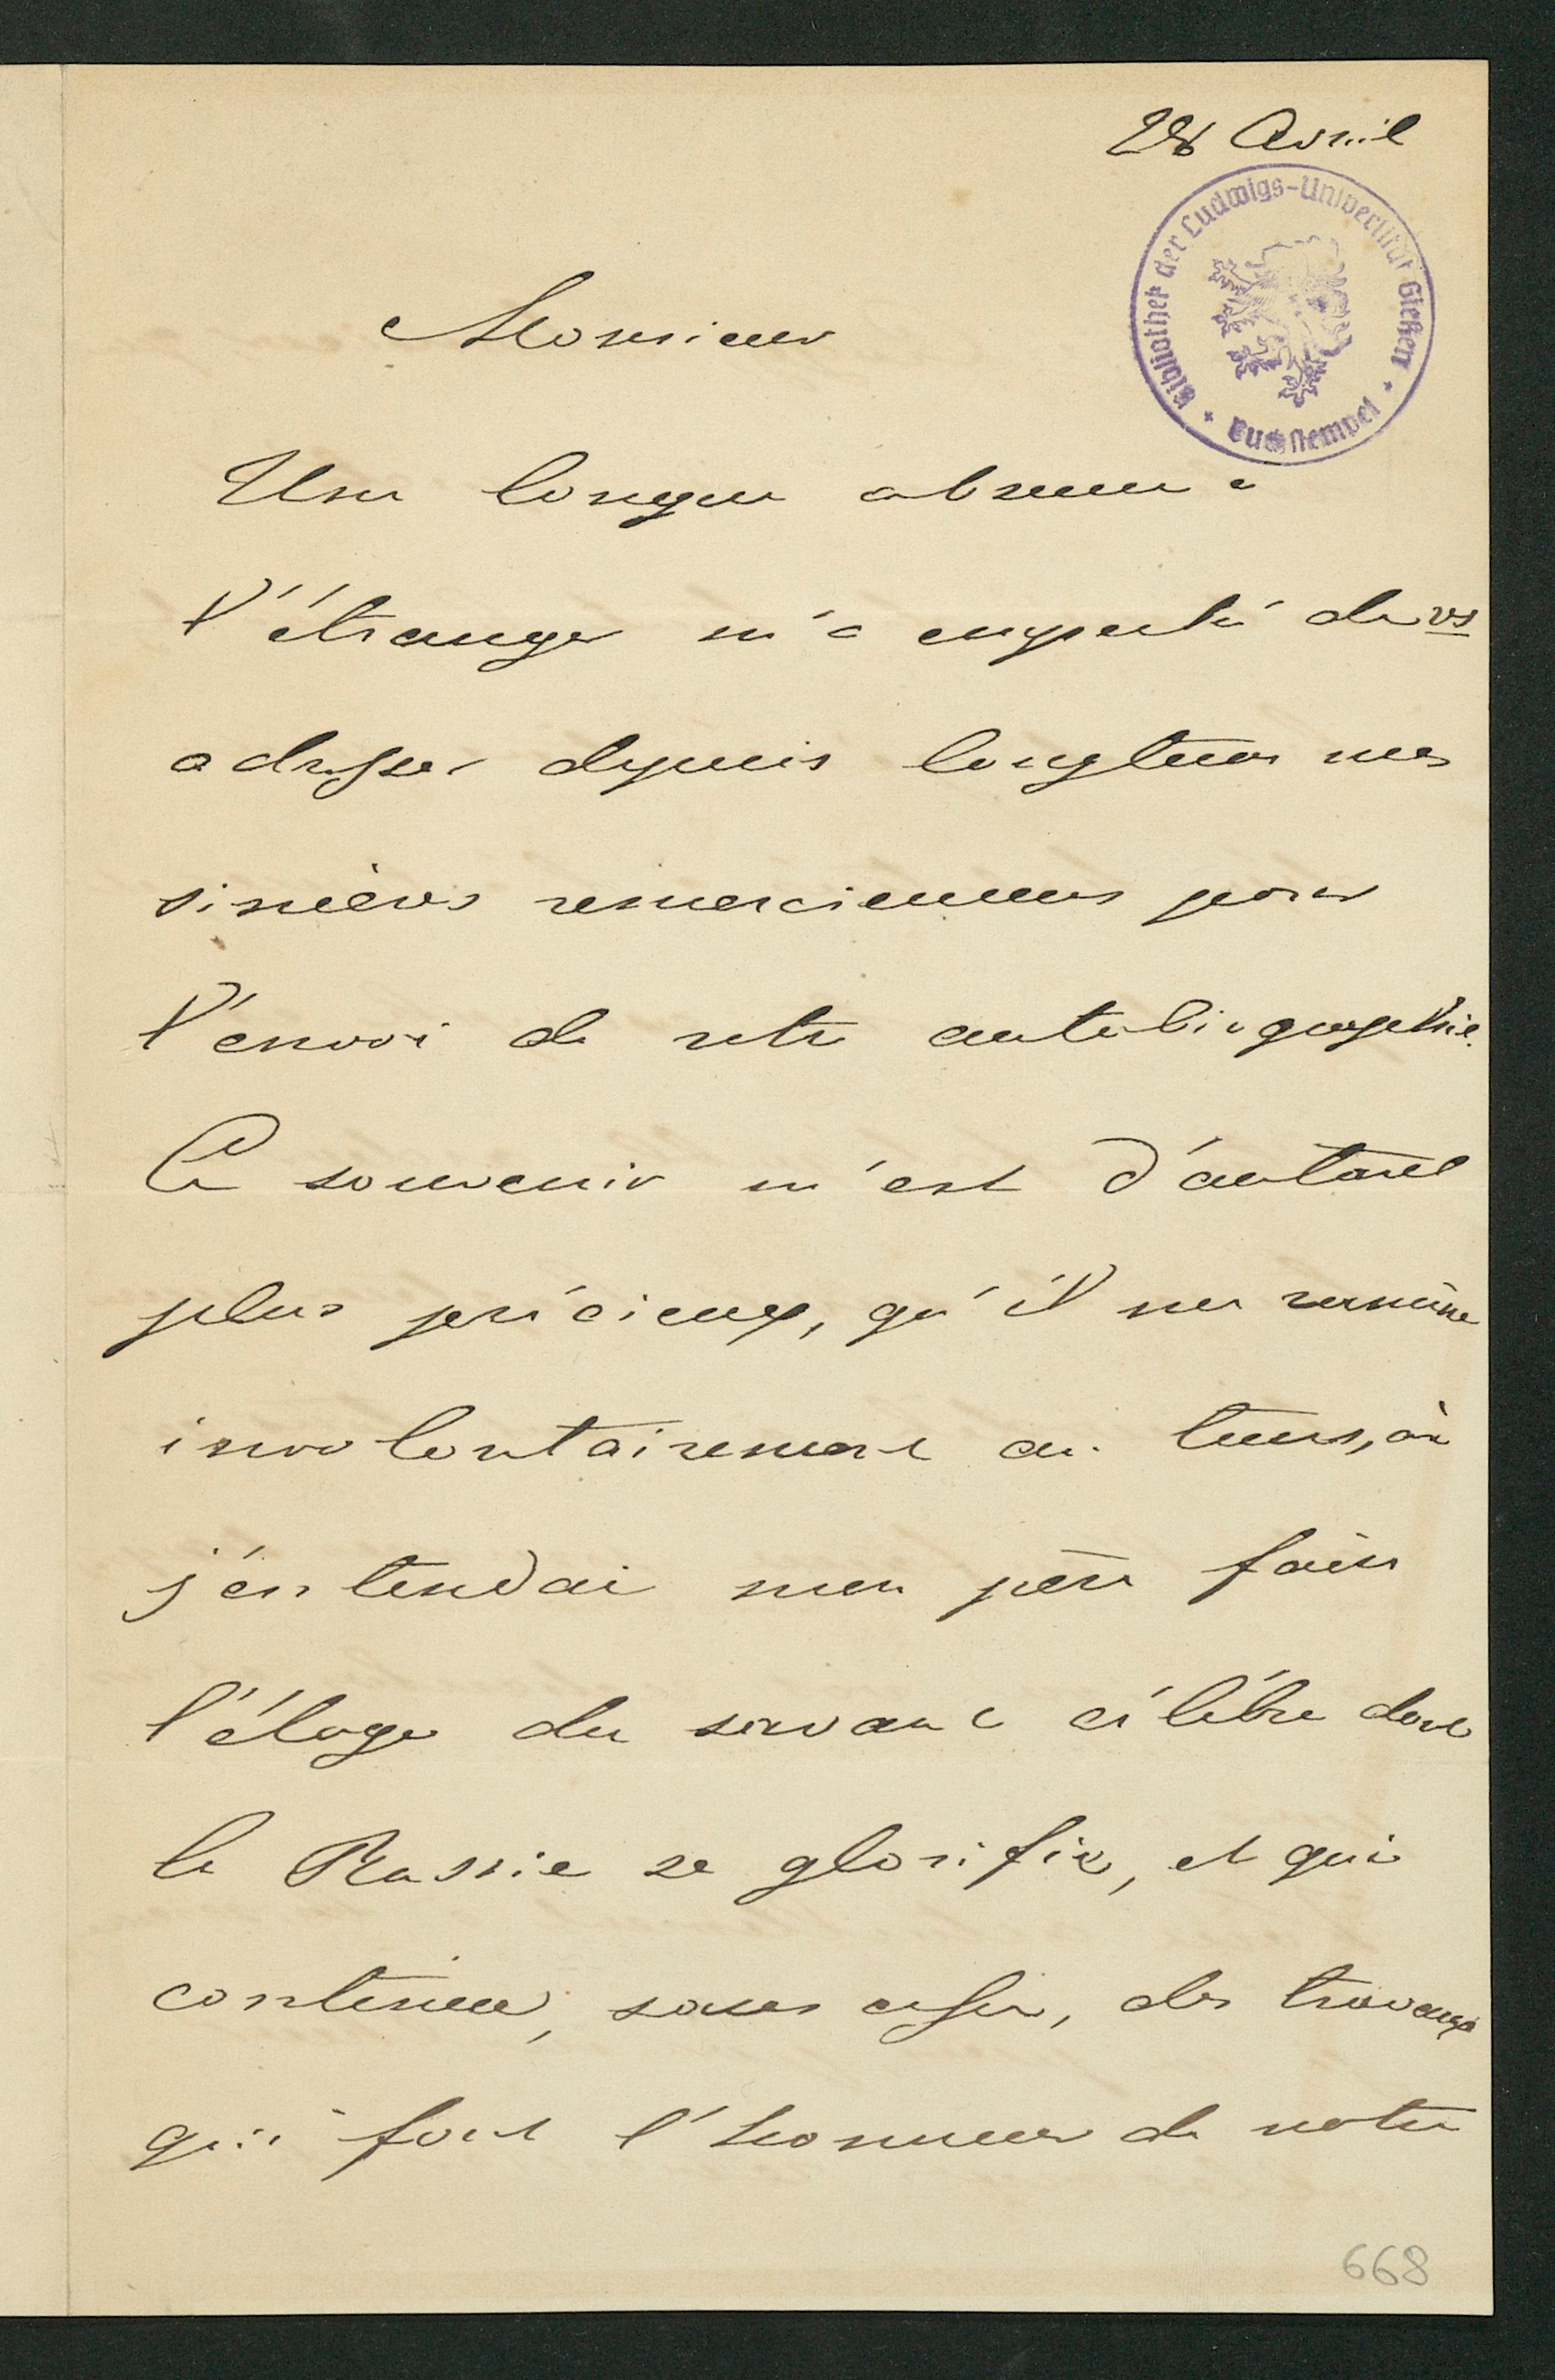 28 Avril
Bibliothek der Ludwigs-Universität Gießen
Buchstempel
Monsieur
Une longue absence à
l'étranger m'a empeché de vs
adresser depuis longtems mes
sincères remerciemens pour
l'envoi de votre autobiographie.
Ce souvenir m'est d'autant
plus précieux, qu'il me ramène
involontairement au tems, où
j'entendai mon père faire
l'éloge du savant célèbre dont
la Russie se glorifie, et qui
continue, sans cesse, des travaux
qui font l'honneur de notre
668